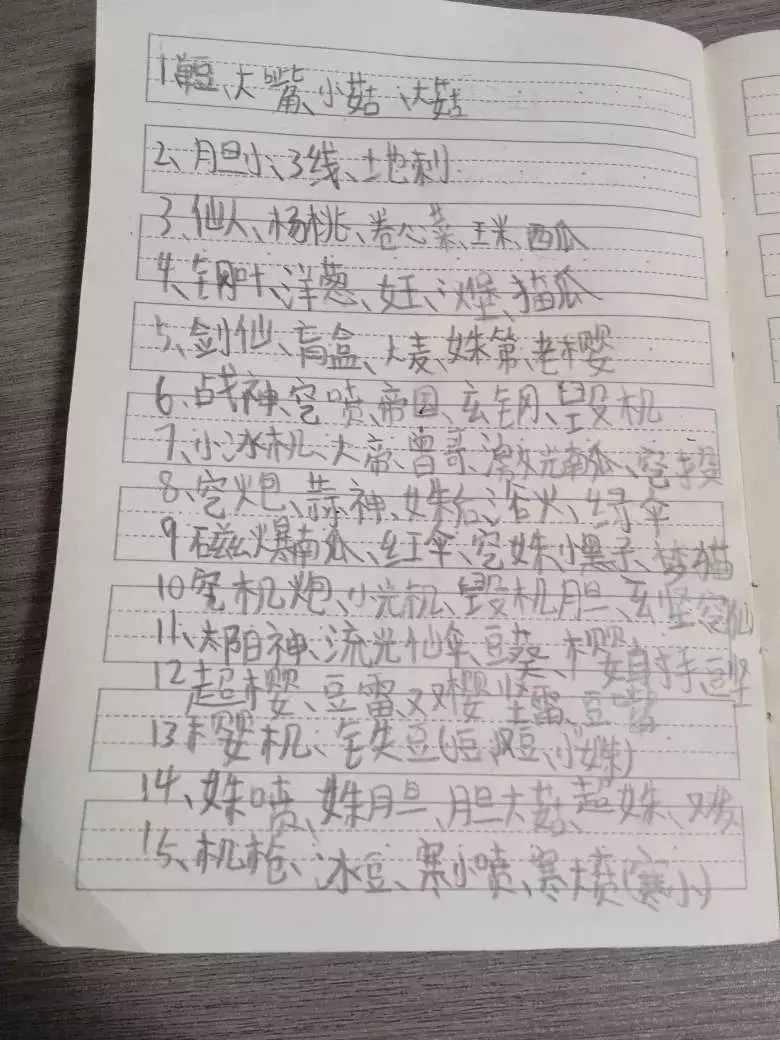 1单豆、大嘴、小菇、大菇
2、胆小、3线、土地刺
3、仙人、杨桃、卷心菜、玉米、西瓜
4、钢叶、洋葱、女王、冰堡、猫瓜
5、剑仙、盲盒、大麦、姝第、老樱
6、战神、窒喷、帝国、玄钢、毁机
7、小冰机、大帝、曾哥、激光南瓜、
8、窒炮、蒜神、姝后、浴火、绿伞
9磁爆南瓜、红伞、窒姝、小黑子、梦猫
10、机炮、小光机、毁机胆、玄坚、仙
11、太阳神、流光仙伞、豆葵、樱 射手、豆坚
12超樱、豆雷、双樱、坚雷、豆嘴
13樱机、全失豆( 豆、双豆、小姝)
14、姝喷、姝胆、胆大菇、超姝、双发
15、机枪、冰豆、寒小喷、寒大喷(寒小)